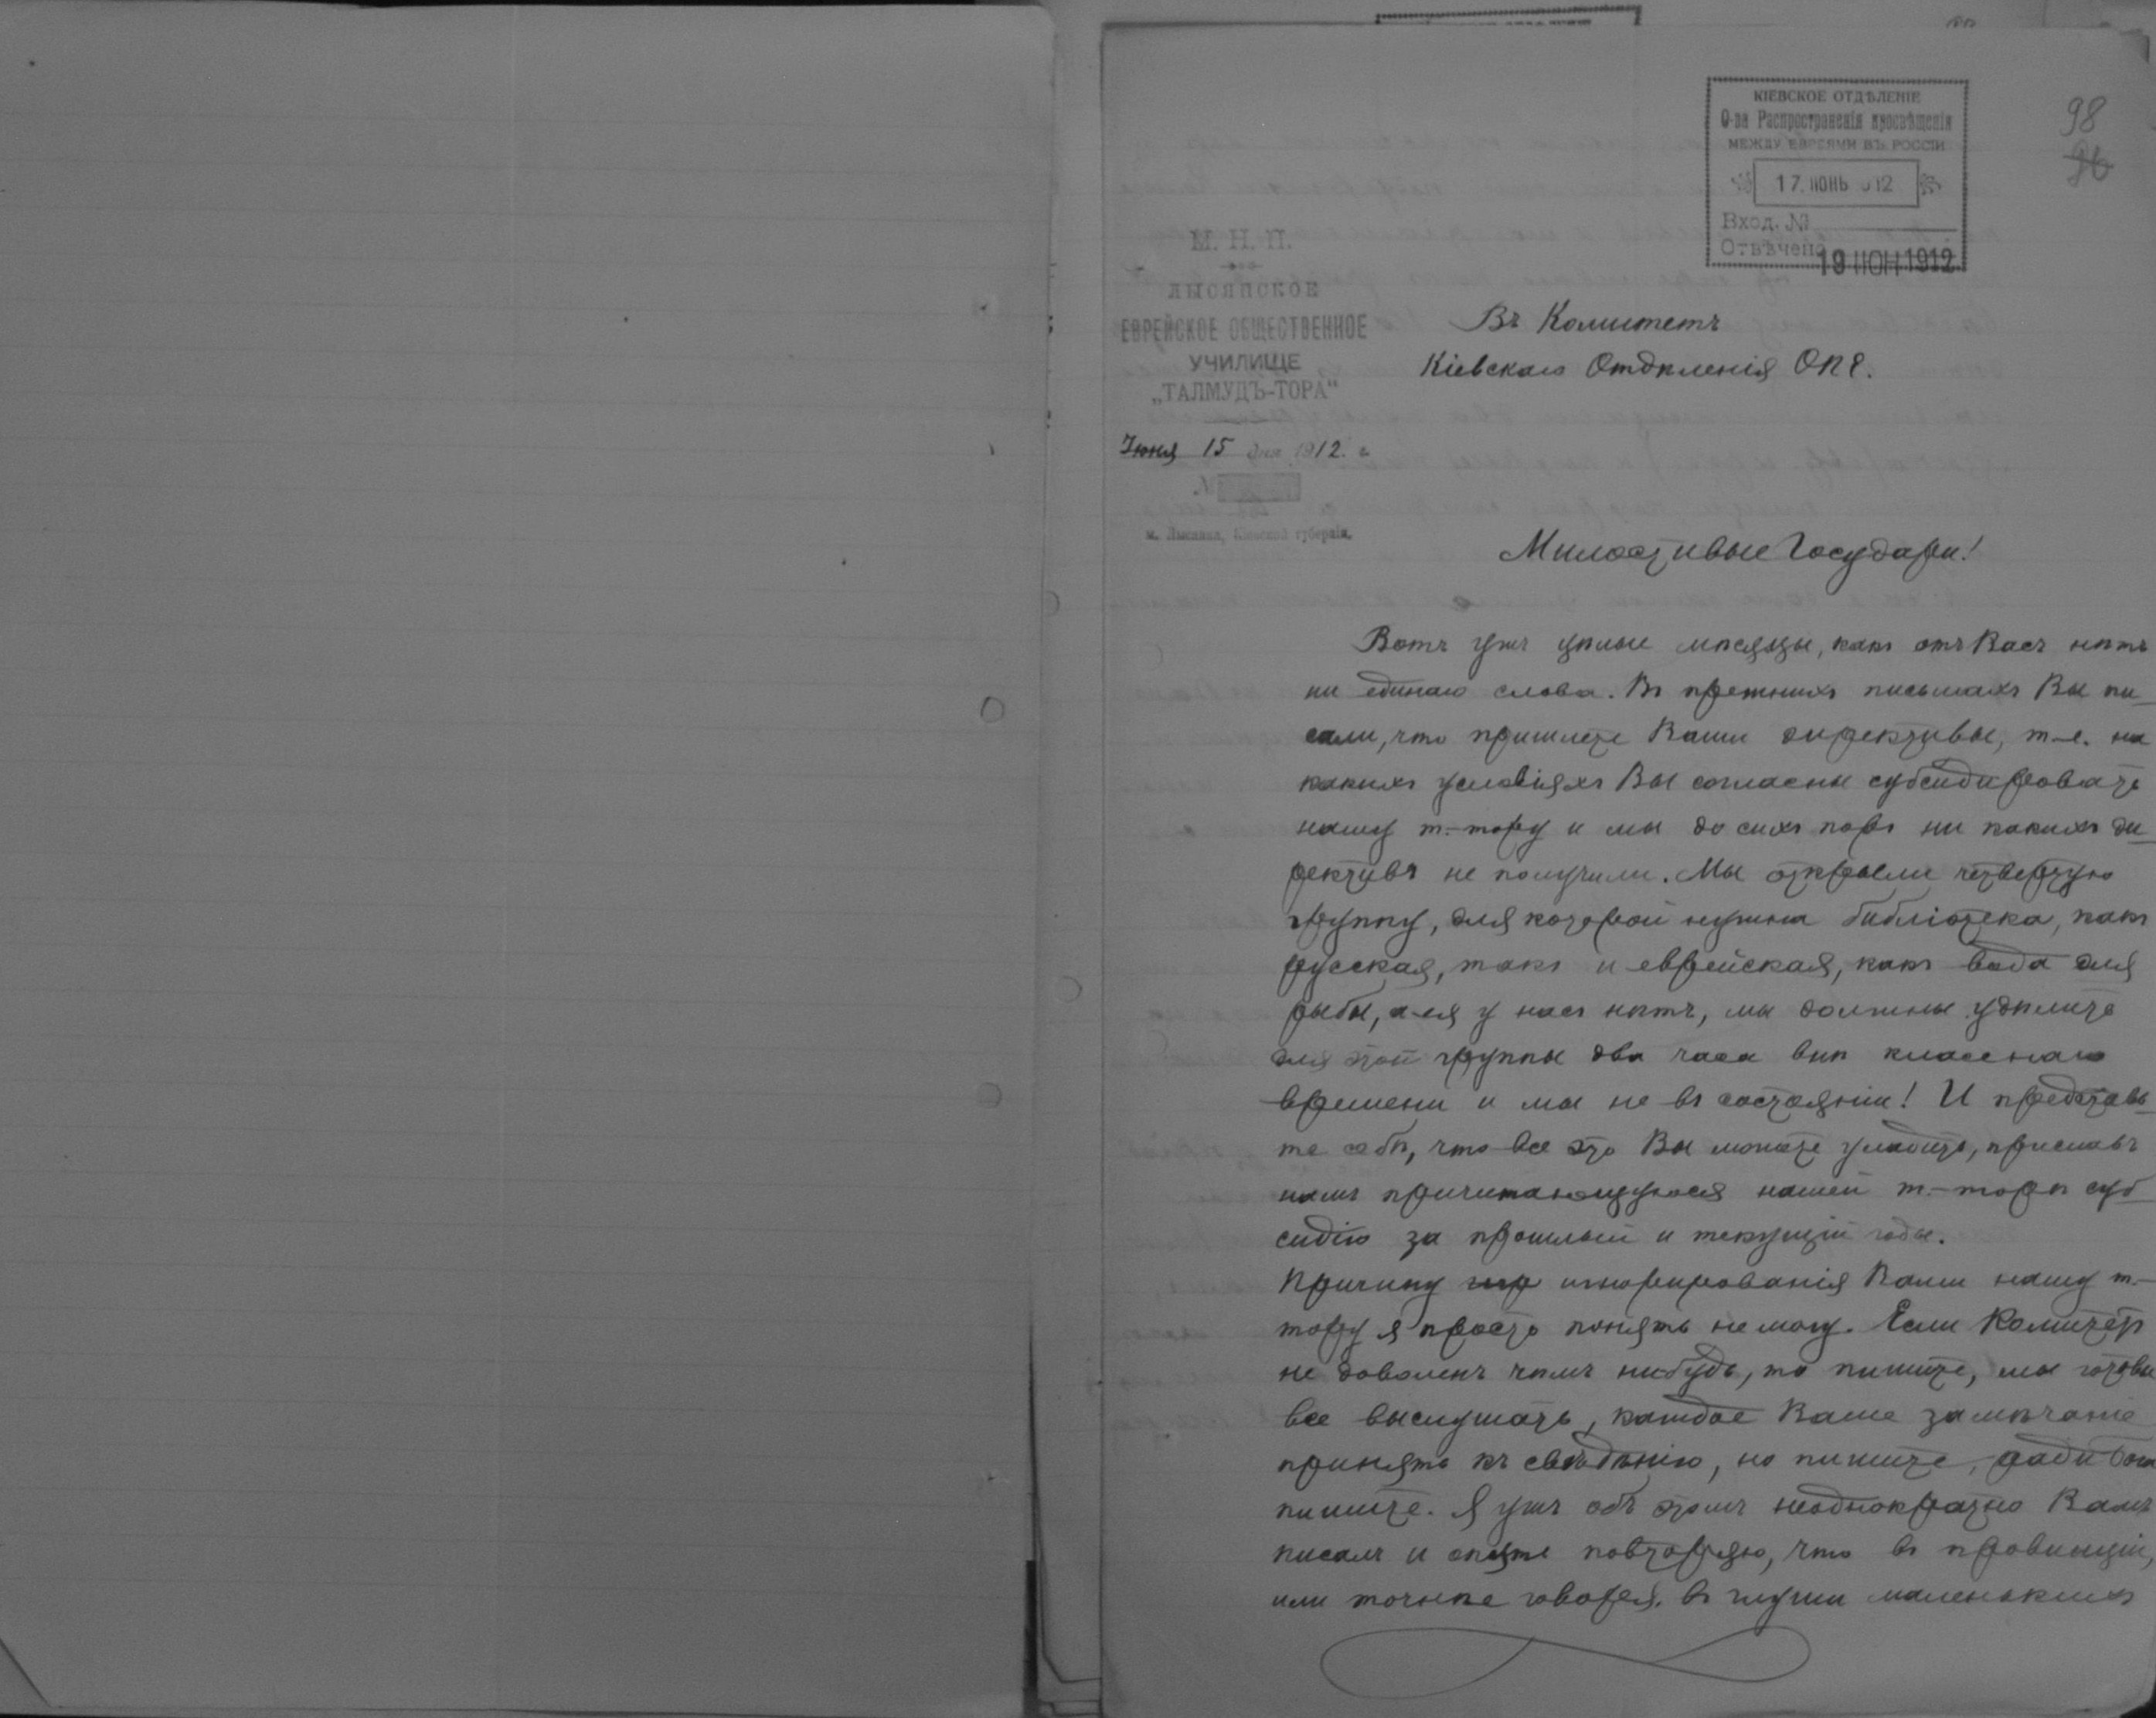 98
96
КІЕВСКОЕ ОТДѢЛЕНІЕ
О-ва Распространенія просвѣщенія
МЕЖДУ ЕВРЕЯМИ ВЪ РОССІИ
17. ІЮНЬ 912
Вход. №
Отвѣчено 19 ІЮН 1912
М. Н. П.
ЛЫСЯНСКОЕ
ЕВРЕЙСКОЕ ОБЩЕСТВЕННОЕ
УЧИЛИЩЕ
„ТАЛМУДЪ-ТОРА“
Іюня 15 дня 1912. г.
№
м. Лысянка, Кіевской губерніи.
Въ Комитетъ
Кіевскаго Отдѣленія ОПЕ.
Милостивые Государи!
Вотъ ужъ цѣлые мѣсяцы, какъ отъ Васъ нѣтъ
ни единаго слова. Въ прежнихъ письмахъ Вы пи-
сали, что пришлете Ваши директивы, т-е. на
какихъ условіяхъ Вы согласны субсидировать
нашу т.-тору и мы до сихъ поръ ни какихъ ди-
рективъ не получили. Мы открыли четвертую
группу, для которой нужна библіотека, какъ
русская, такъ и еврейская, какъ вода для
рыбы, а-ея у насъ нѣтъ, мы должны удѣлить
для этой группы два часа внѣ класснаго
времени и мы не въ состояніи! И представь-
те себѣ, что все это Вы можете уладить, приславъ
намъ причитающуюся нашей т.-торѣ суб-
сидію за прошлый и текущій годы.
Причину игнорированія Вами нашу т.-
тору я просто понять не могу. Если Комитетъ
не доволенъ чѣмъ нибудь, то пишите, мы готовы
все выслушать, каждое Ваше замѣчаніе
принять къ свѣдѣнію, но пишите, ради Бога
пишите. Я ужъ объ этомъ неоднократно Вамъ
писалъ и опять повторяю, что въ провинціи,
или точнѣе говоря, въ глуши маленькихъ